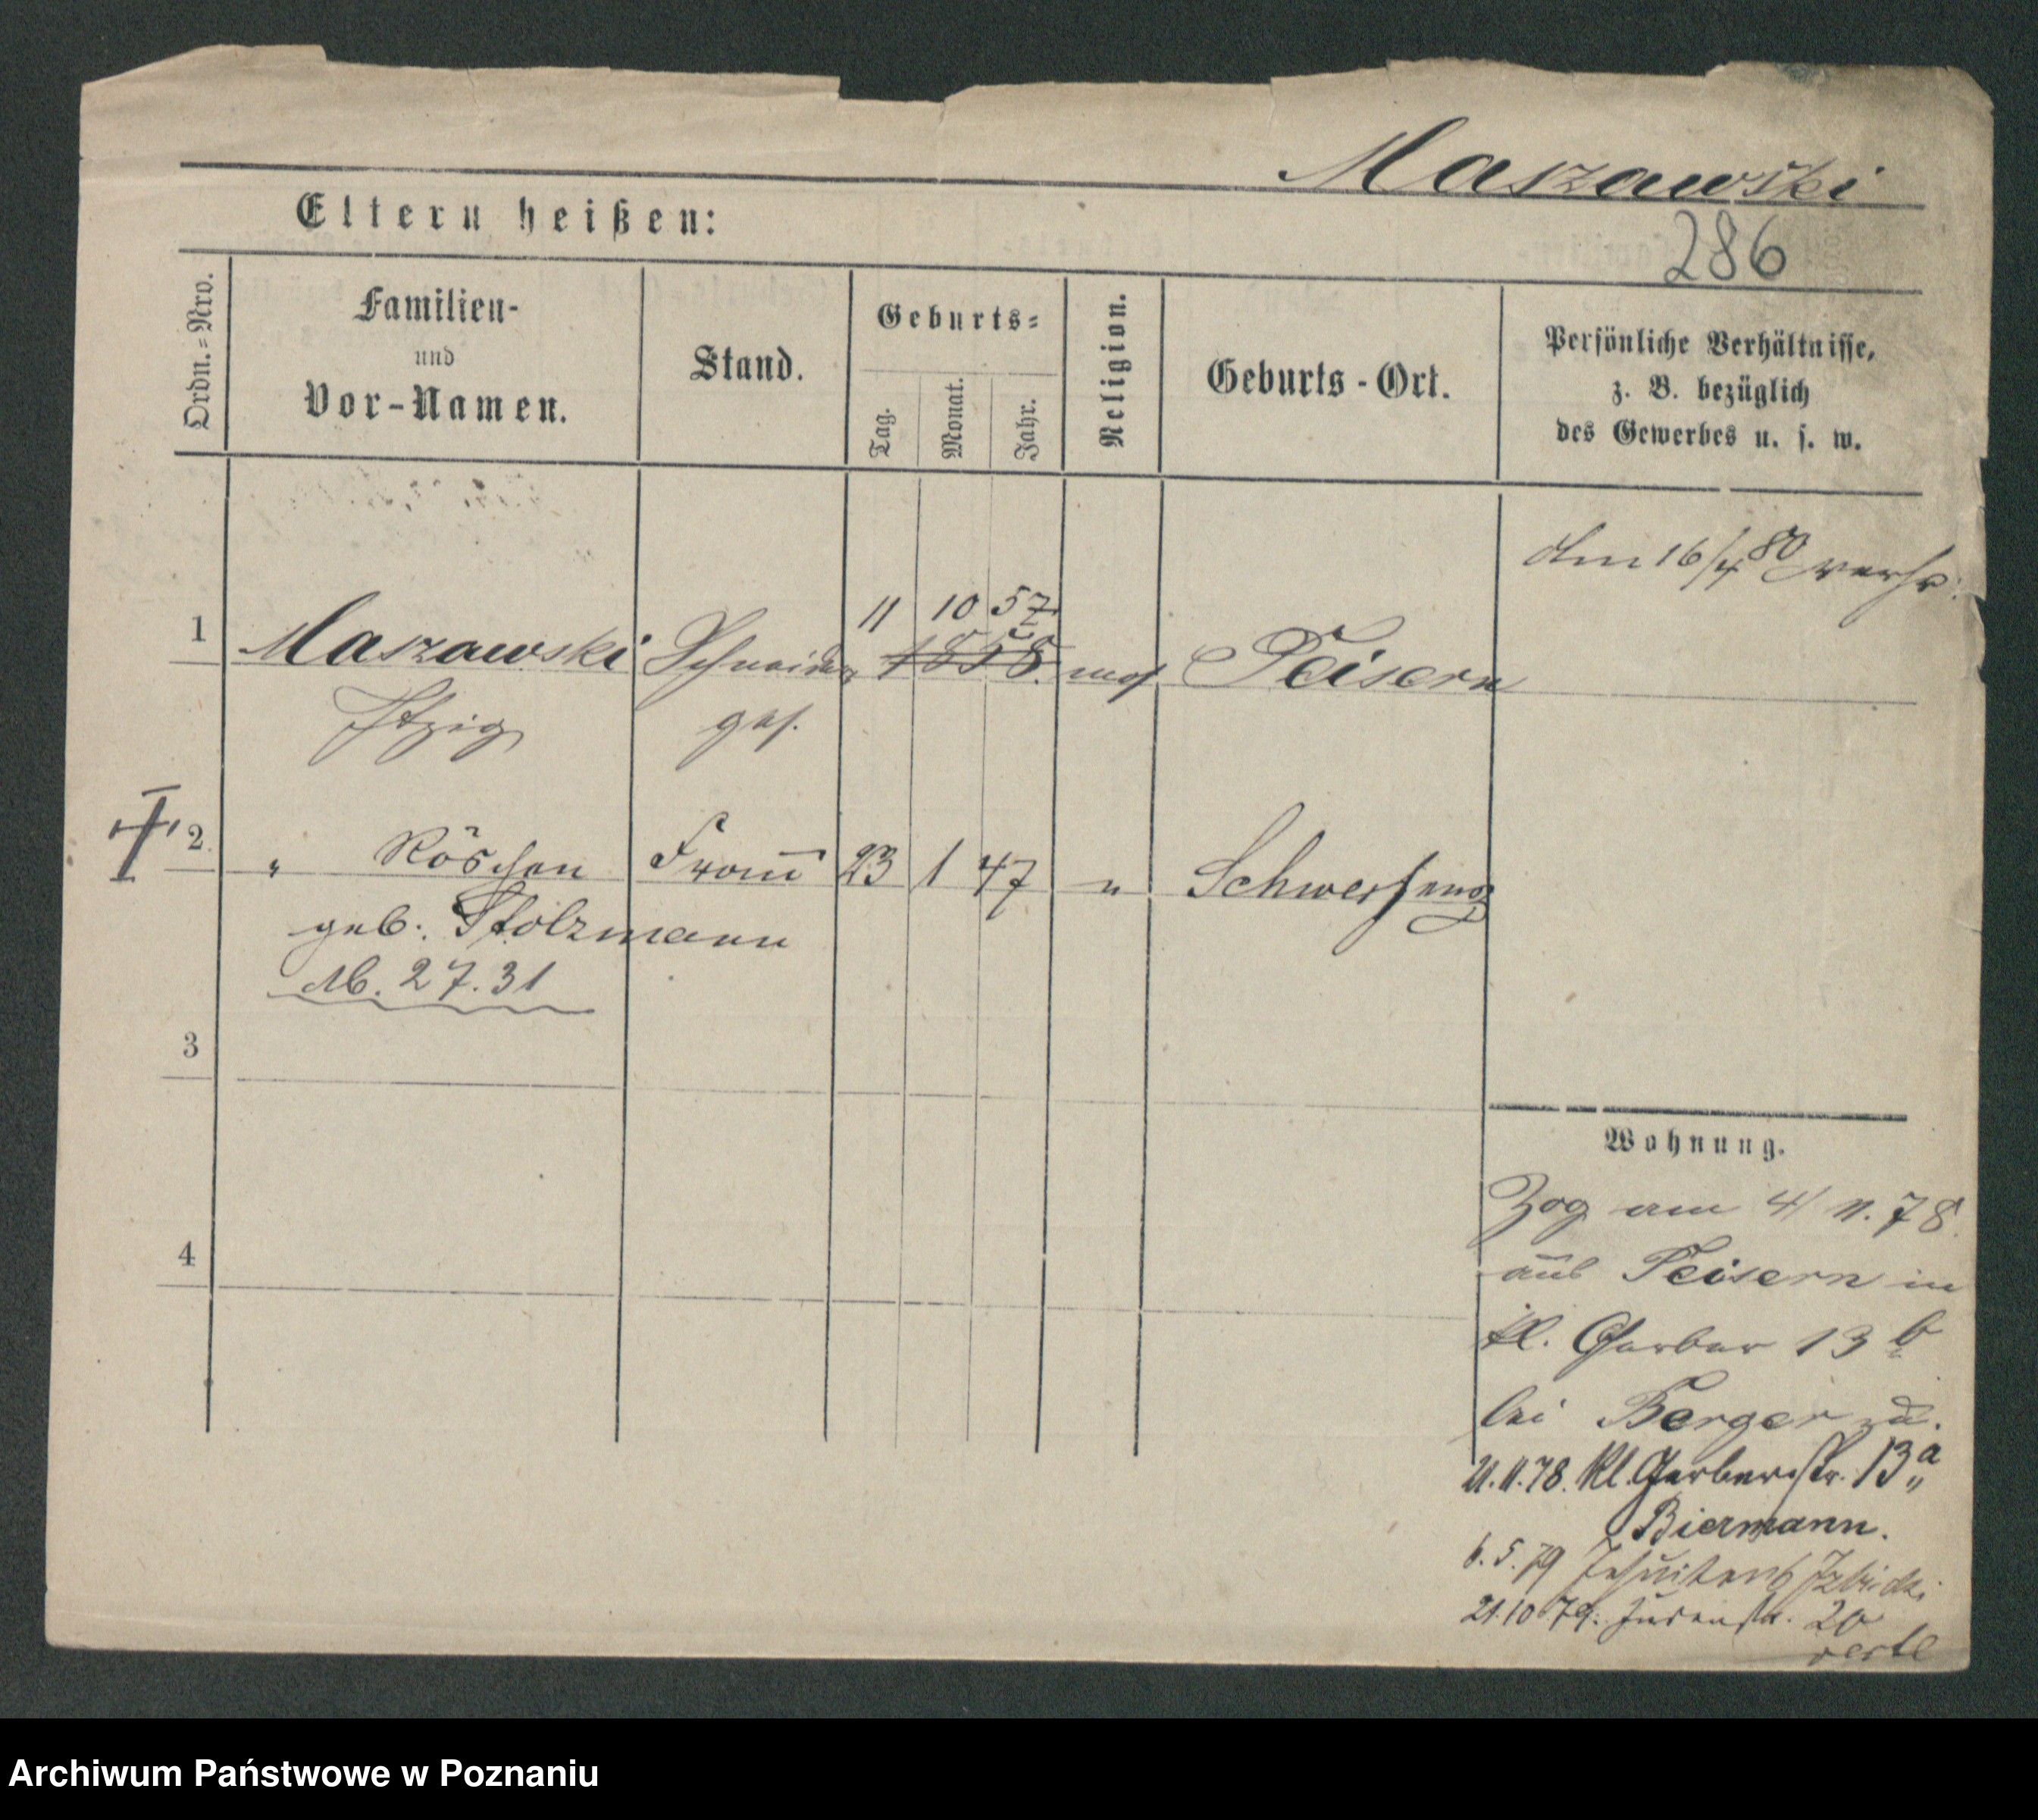 Maszawski
Eltern heißen:
286
Ordn.=Nro.
Familien-
und
Vor-Namen.
Stand.
Geburts=
Tag.
Monat.
Jahr.
Religion.
Geburts-Ort.
Persönliche Verhältnisse,
z. B. bezüglich
des Gewerbes u. s. w.
am 16/4 80 verh.
11 10 57
1 Maszawski Schneider 1858. mos. Peisern
Itzig ges.
2. " Röschen Frau 23 1 47 " Schwersenz
geb. Stolzmann
Ab. 27.31
3
4
Wohnung.
Zog am 4/11.78
aus Peisern in
kl. Gerber 13 b
bei Berger zu.
21.11.78. Kl. Gerberstr. 13 a
Biermann.
6.5.79 Jesuitenst Izbicki
21.10 79. Judenstr. 20